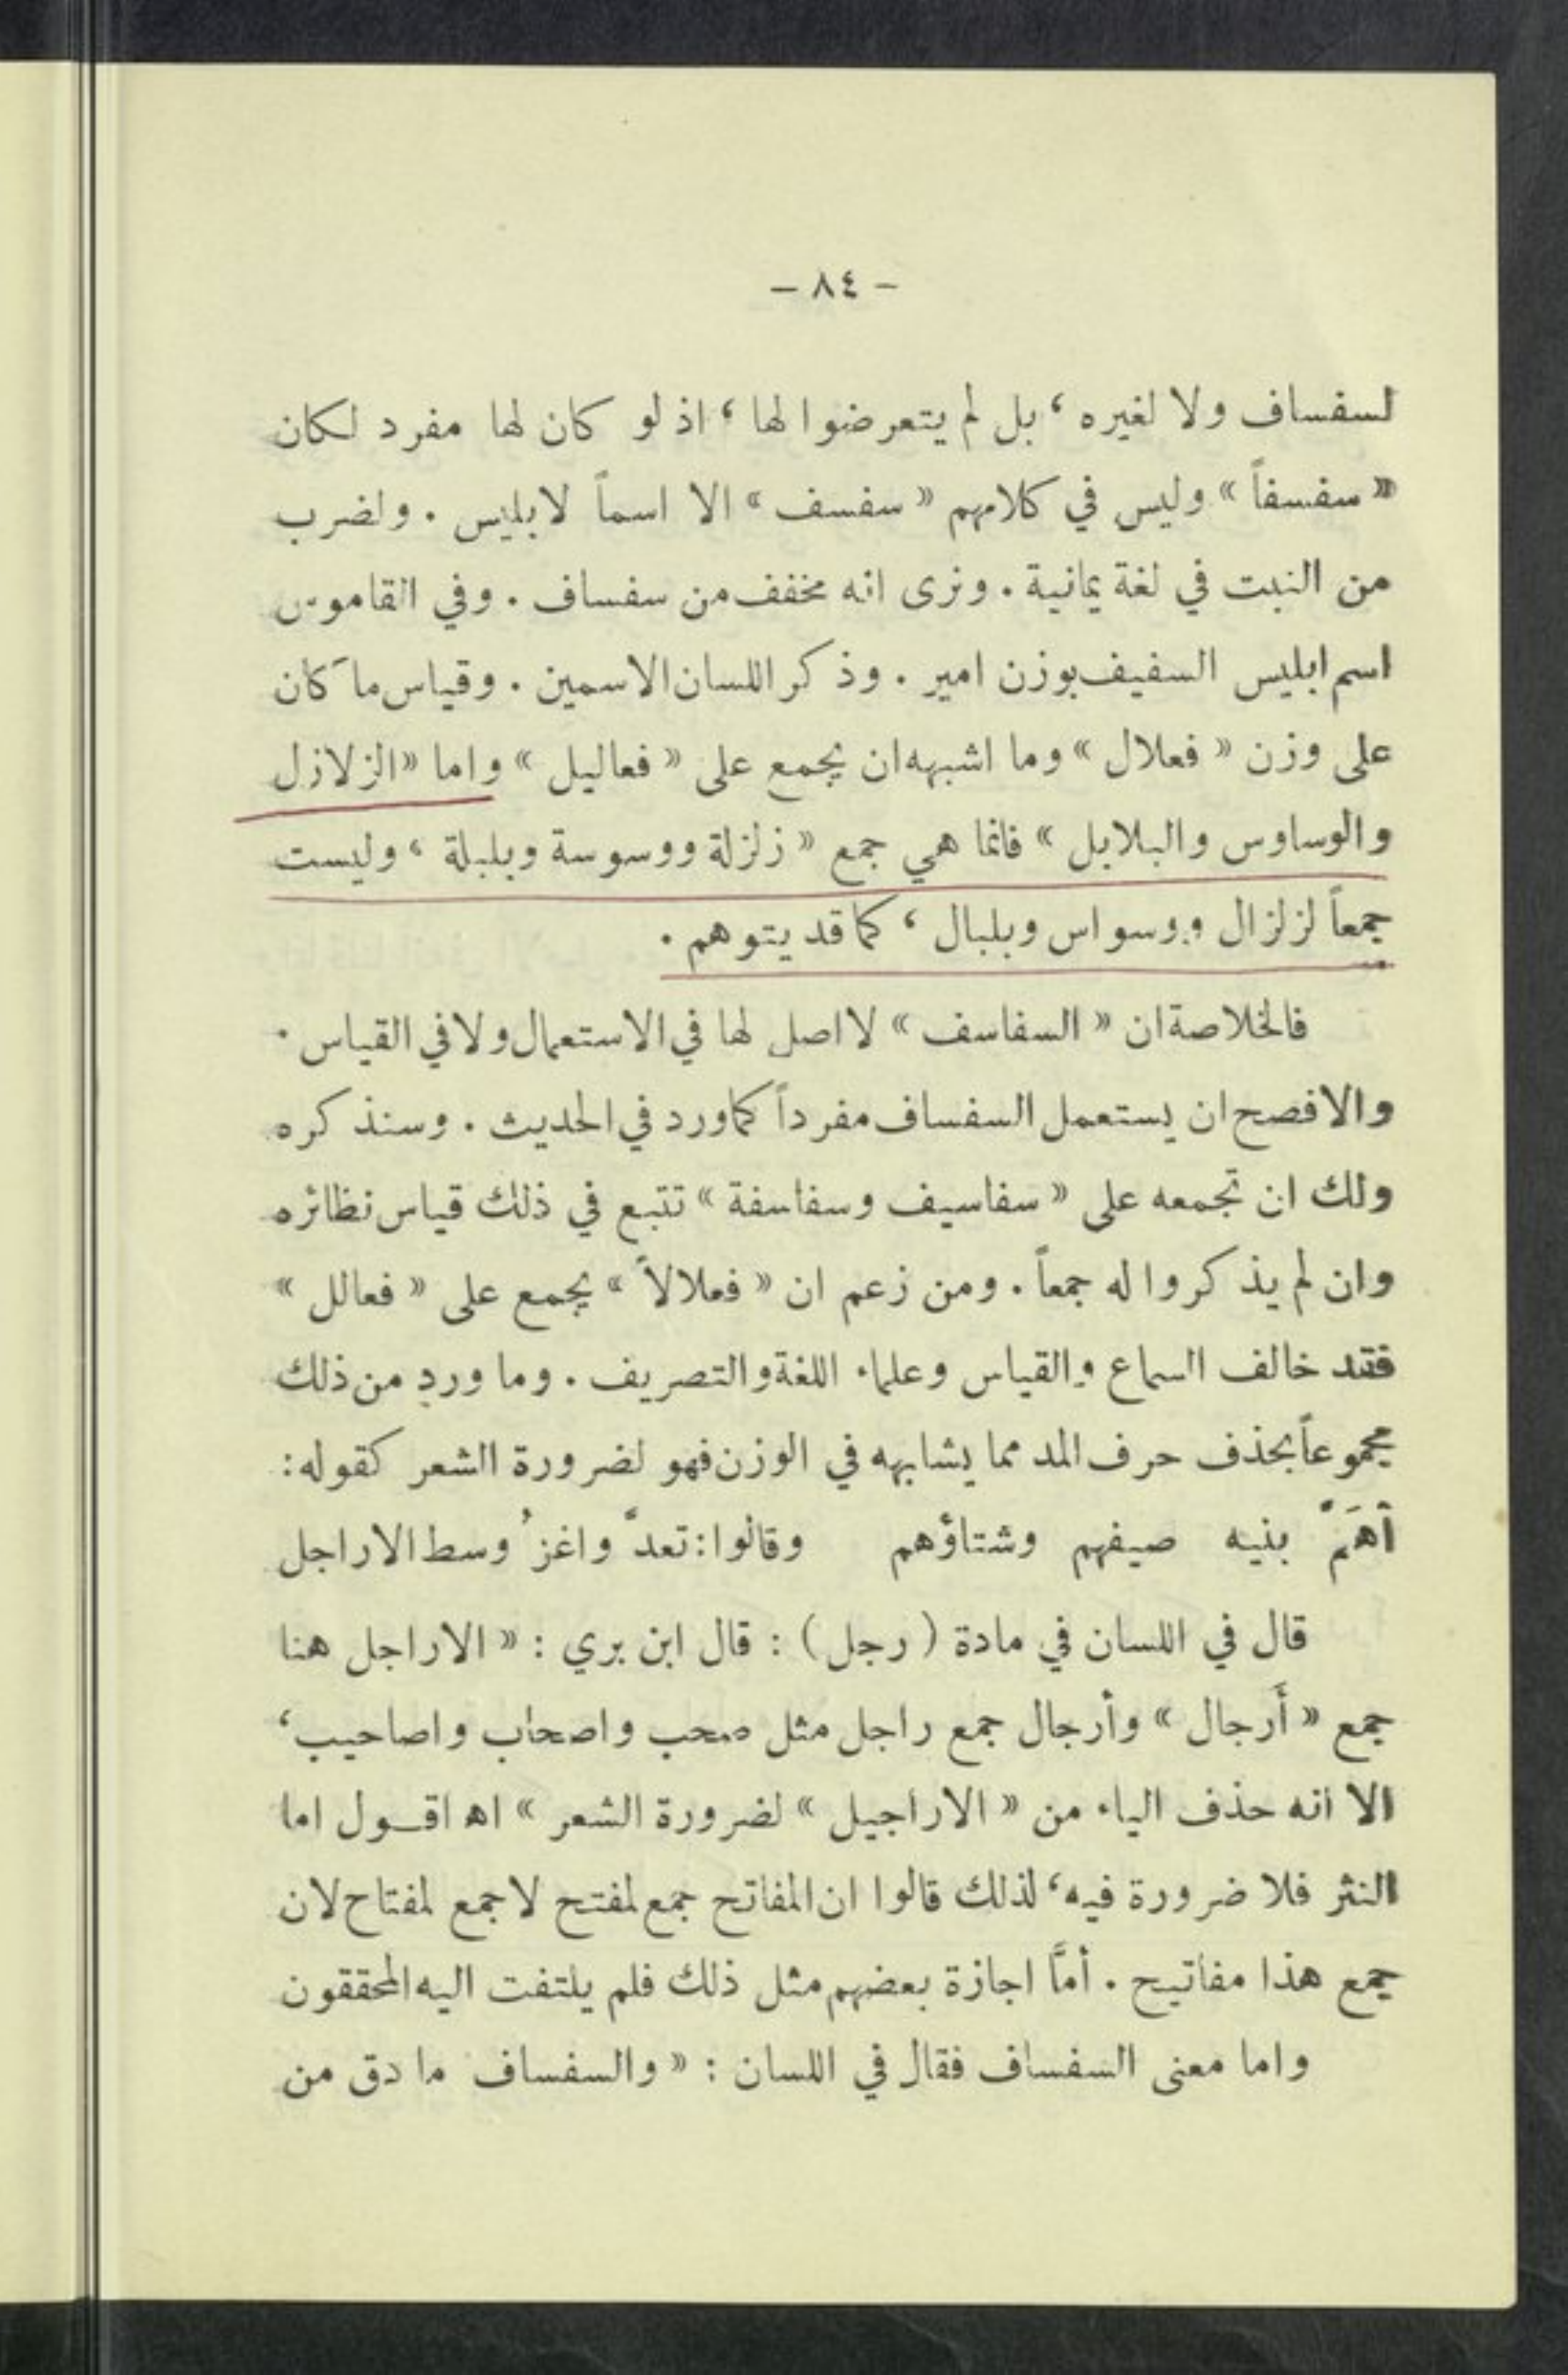 – ٨٤ –
لسفساف ولا لغيره ، بل لم يتعرضوا لها ، اذ لو كان لها مفرد لكان
« سفسفاً » وليس في كلامهم « سفسف » الا اسماً لابليس . ولضرب
من النبت في لغة يمانية . ونرى انه مخفف من سفساف . وفي القاموس
اسم ابليس السفيف بوزن امير . وذكر اللسان الاسمين . وقياس ما كان
على وزن « فعلال » وما اشبهه ان يجمع على « فعاليل » واما « الزلازل
والوساوس والبلابل » فانما هي جمع « زلزلة ووسوسة وبلبلة ، وليست
جمعاً لزلزال ووسواس وبلبال ، كما قد يتوهم .
فالخلاصة ان « السفاسف » لا اصل لها في الاستعمال ولا في القياس .
والافصح ان يستعمل السفساف مفرداً كما ورد في الحديث . وسنذكره
ولك ان تجمعه على « سفاسيف وسفاسفة » تتبع في ذلك قياس نظائره
وان لم يذكروا له جمعاً . ومن زعم ان « فعلالاً » يجمع على « فعالل »
فقد خالف السماع والقياس وعلماء اللغة والتصريف . وما ورد من ذلك
مجموعاً بحذف حرف المد مما يشابهه في الوزن فهو لضرورة الشعر كقوله :
أَهَمَّ بنيه صيفهم وشتاؤهم وقالوا : تعدَّ واغزُ وسط الاراجل
قال في اللسان في مادة ( رجل ) : قال ابن بري : « الاراجل هنا
جمع « أَرجال » وأرجال جمع راجل مثل صحب واصحاب واصاحيب ،
الا انه حذف الياء من « الاراجيل » لضرورة الشعر » اه اقــول اما
النثر فلا ضرورة فيه ، لذلك قالوا ان المفاتح جمع لمفتح لا جمع لمفتاح لان
جمع هذا مفاتيح . أمَّا اجازة بعضهم مثل ذلك فلم يلتفت اليه المحققون
واما معنى السفساف فقال في اللسان : « والسفساف ما دق من